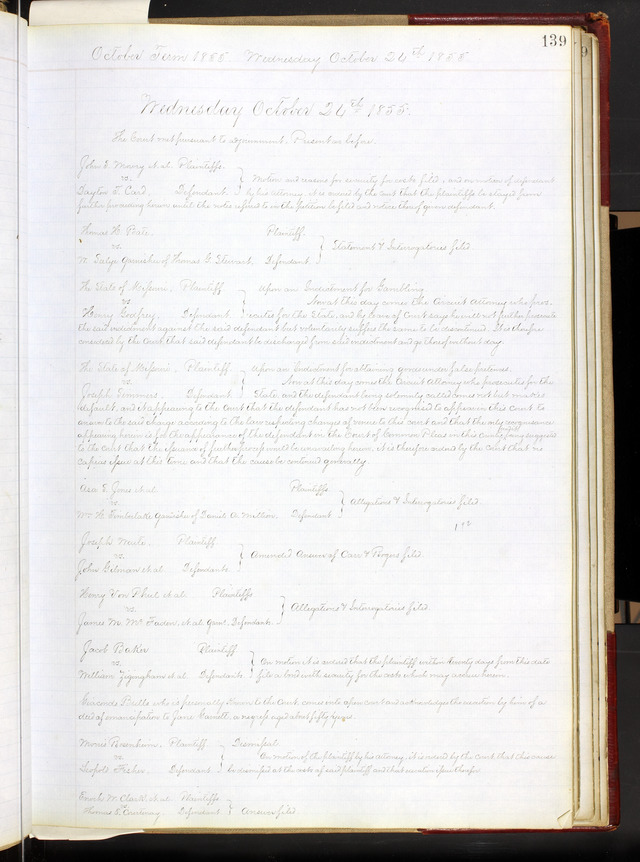 139
October Term 1855 Wednesday October 24th 1855.
Wednesday October 24th 1855.
The Court met pursuant to adjournment. Present as before.
John E. et al. Plaintiffs
vs.
Taylor F. Card, Defendant
Motion and reasons for security for costs filed, and on motion of defendant
by his attorney it is ordered by the Court that the plaintiffs be
further proceeding herein until the notes referred to in the Petition be filed and notice thereof given defendant.
Thomas H. Plaintiff
vs.
Garnishee of Thomas G. Stewart, Defendant
Statement & Interrogatories filed.
The State of Missouri, Plaintiff
vs
Henry Godfrey, Defendant
Upon an Indictment for Gambling
Now at this day comes the Circuit Attorney who prose-
cutes for the State, and by leave of Court says he will not further prosecute
the said indictment against the said defendant but voluntarily suffers the same to be discontinued. It is therefore
considered by the Court that said defendant be discharged from said indictment and go thereof without day.
The State of Missouri, Plaintiff
vs
Joseph Simmons, Defendant
Upon an Indictment for obtaining goods under false pretenses.
Now at this day comes the Circuit Attorney who prosecutes for the
State, and the defendant being solemnly called comes not but makes
default, and it appearing to the Court that the defendant has not been recognized to appear in this Court to
answer to the said charge according to the law respecting changes of venue to this court and that the only recognizance
appearing herein is for the appearance of the defendant in the Court of Common Pleas in this County, being suggested
to the Court that the issuance of further process would be unavailing herein, it is therefore ordered by the Court that no
capias issue at this time and that the cause be continued generally.
Asa E. Jones et al. Plaintiffs
vs.
Wm H. Timberlake Garnishee of Daniel A. Defendant
Allegations & Interrogatories filed.
Joseph Plaintiff
vs.
John Gilman et al Defendants
Amended Answer of filed.
Henry Von Phul et al. Plaintiffs
vs.
James M. et al. Defendants
Allegations & Interrogatories filed
Jacob Baker Plaintiff
vs
William et al. Defendants
On motion it is ordered that the plaintiff within twenty days from this date
file a bond with security for the costs which may accrue herein.
who is personally known to the Court, comes into open court and acknowledges the execution by him of a
deed of emancipation to Jane Garrett, a negress aged about fifty years.
Morris Rosenheim, Plaintiff
vs.
Leopold Fisher, Defendant
Dismissal.
On motion of the plaintiff by his attorney, it is ordered by the Court that this cause
be dismissed at the costs of said plaintiff and that execution issue therefor.
Enoch M. Clark et al. Plaintiffs
vs
Thomas E. Defendant
Answer filed.